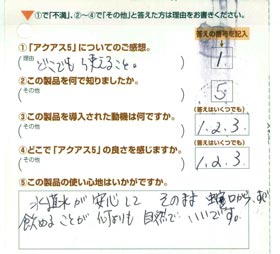 ▼①で「不満」、②~④で「その他」と答えた方は理由をお書きください。
答えの番号を記入
①「アクアス5」についてのご感想。
(理由 どこでも使えること。
1
②この製品を何で知りましたか。
(その他
5
③この製品を導入された動機は何ですか。
(その他
答えはいくつでも
1.2.3.
④どこで「アクアス5」の良さを感じますか。
(その他
答えはいくつでも
1.2.3.
⑤この製品の使い心地はいかがですか。
水道水が安心して そのまま 蛇口から
飲めることが 何よりも 自然で いいです。